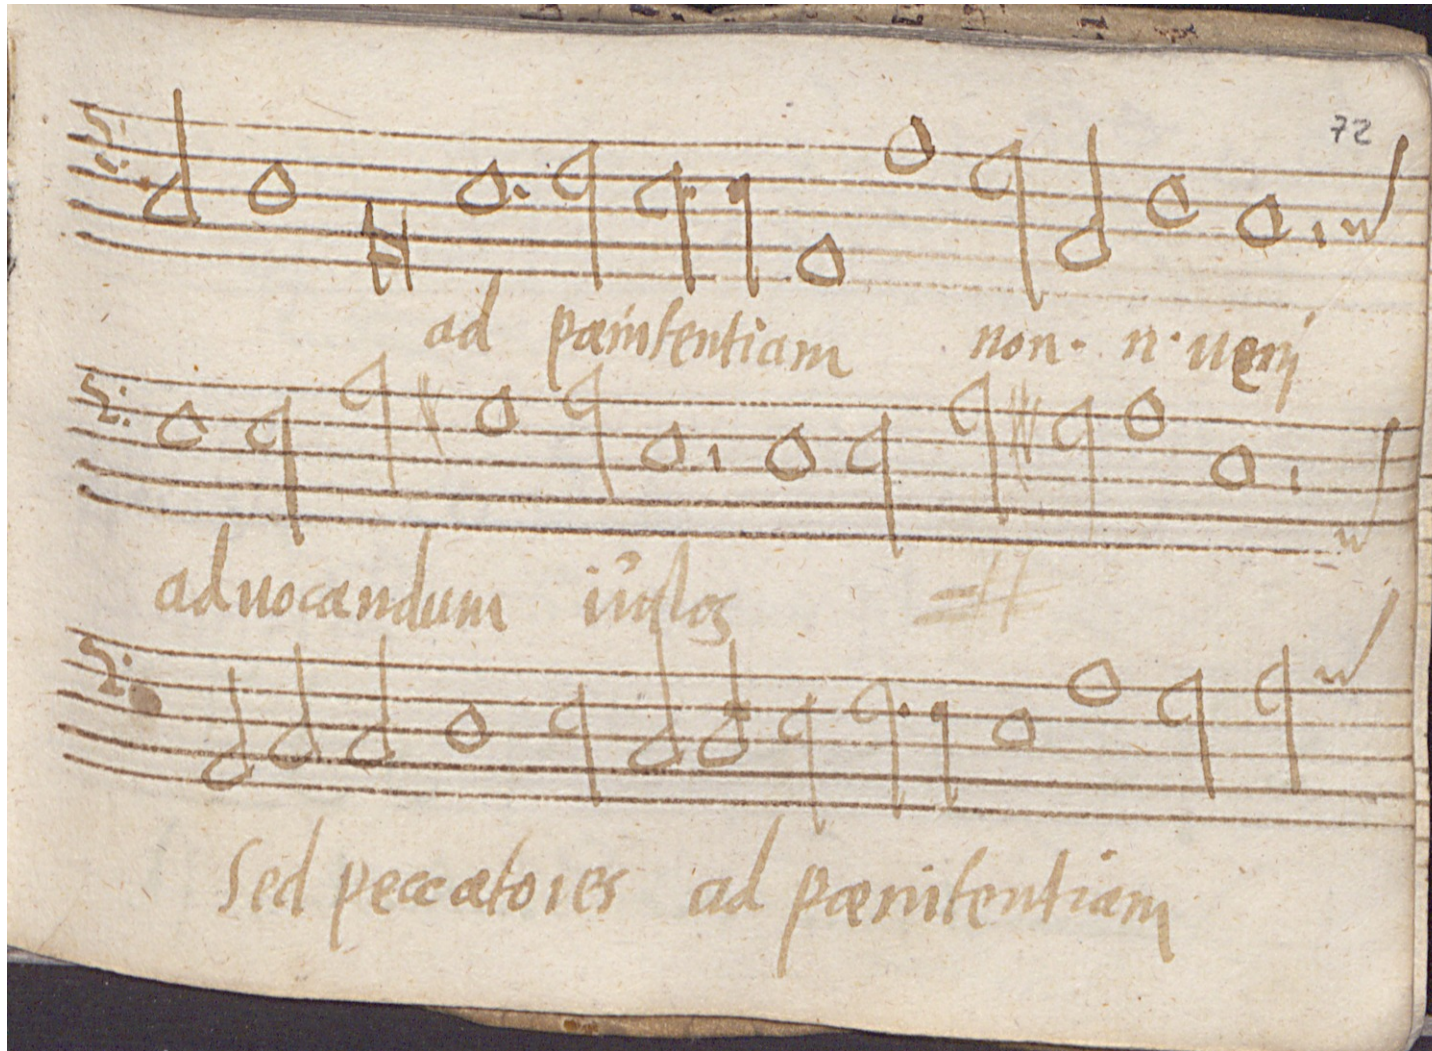 72
ad pænitentiam non. n. uenj
ad uocandum iustos
Sed peccatores ad pænitentiam